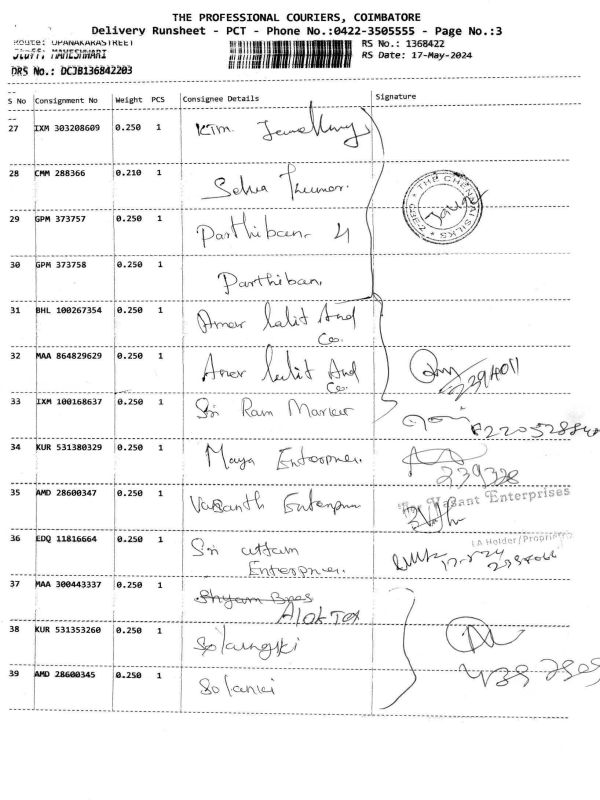 THE PROFESSIONAL COURIERS, COIMBATORE
Delivery Runsheet - PCT - Phone No.:0422-3505555 - Page No.:3
Route: UPANAKARASTREET
Staff: MAHESHWARI
DRS No.: DCJB136842203
RS No.: 1368422
RS Date: 17-May-2024
S No Consignment No Weight PCS Consignee Details Signature
27 IXM 303208609 0.250 1 KTM. Jewellery
28 CMM 288366 0.210 1
THE CHENNAI SILKS * CBE-2 *
29 GPM 373757 0.250 1 Parthiban. 4
30 GPM 373758 0.250 1 Parthiban.
31 BHL 100267354 0.250 1 Amar Lalit And Co.
32 MAA 864829629 0.250 1 Amar Lalit And Co.
2394011
33 IXM 100168637 0.250 1 Sri Ram Marker
34 KUR 531380329 0.250 1 Maya Enterprises.
239328
35 AMD 28600347 0.250 1 Vasanth Enterprises
For Vasant Enterprises
36 EDQ 11816664 0.250 1 Sri uttam Enterprises.
LA Holder/Proprietor
37 MAA 300443337 0.250 1 Shyam Bros
Alok Tex
38 KUR 531353260 0.250 1 Solangki
39 AMD 28600345 0.250 1 Solanki